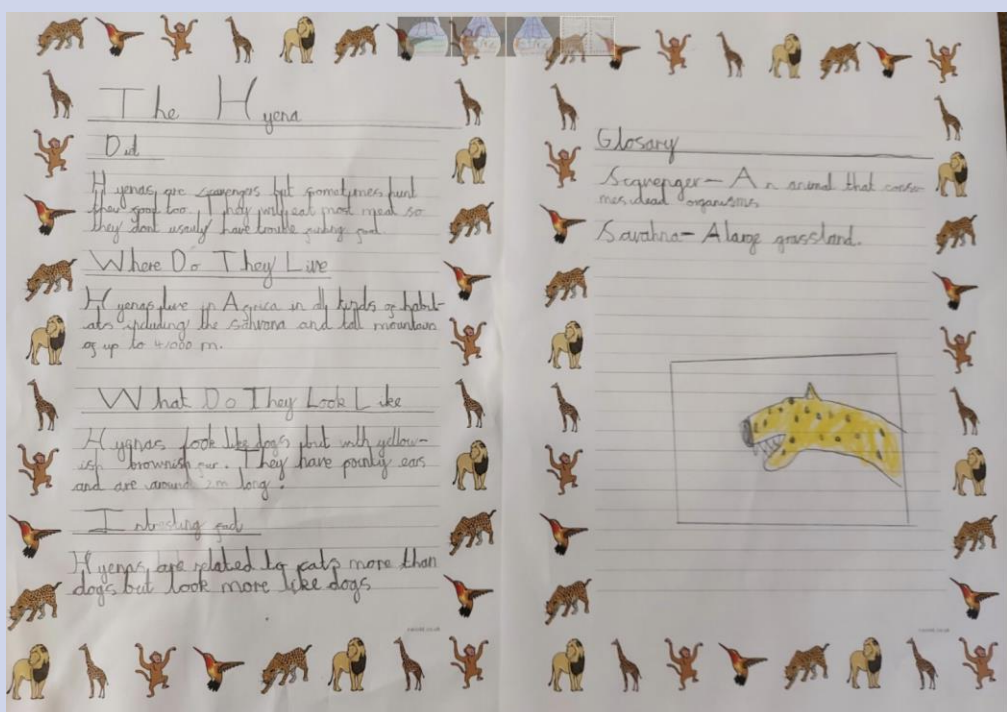 The Hyena
Did
Hyenas are scavengers but sometimes hunt
they food too. They will eat most meat so
they dont usually have trouble finding food
Where Do They Live
Hyenas live in Africa in all kinds of habit-
ats including the savanna and tall mountain
of up to 4,000 m.
What Do They Look Like
Hyenas look like dogs but with yellow-
ish brownish fur. They have pointy ears
and are around 2m long.
Intresting fact
Hyenas are related to cats more than
dogs but look more like dogs
Glosary
Scavenger- An animal that consu-
mes dead organisms
Savanna- A large grassland.